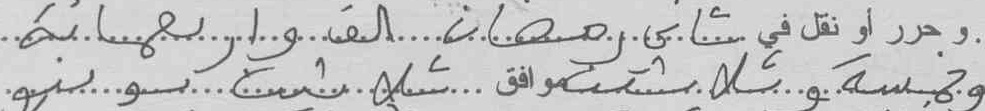 وحرر أو نقل في ثاني رمضان الف واربعمائة
وخمسة وثلاثين موافق ثلاثين يونيو